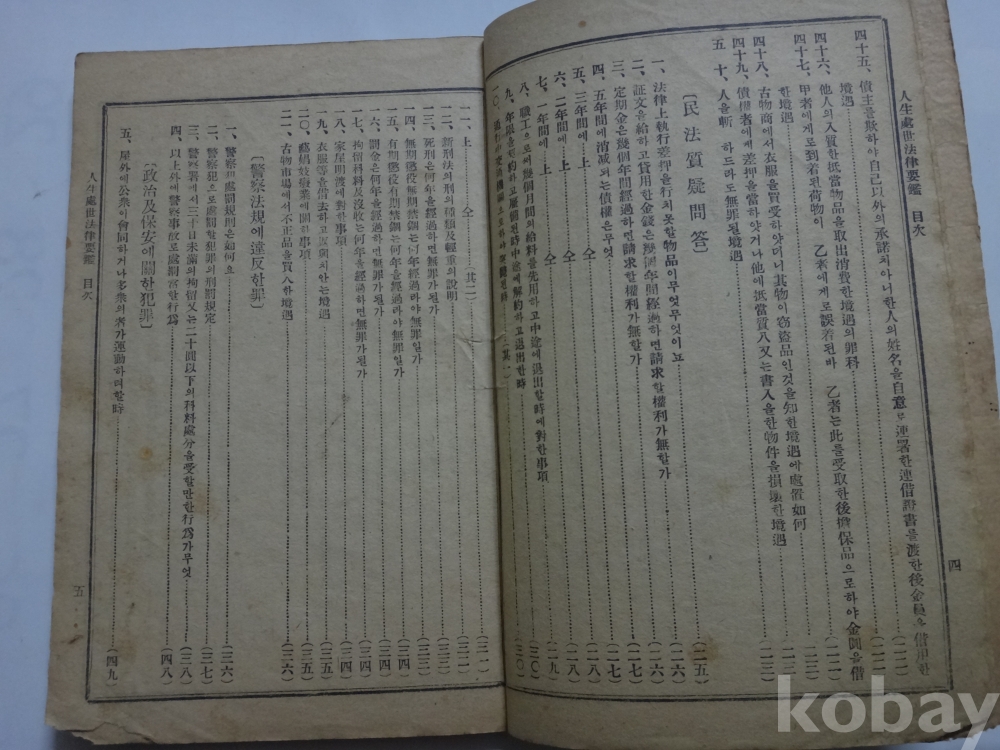 人生處世法律要鑑 目次
四
四十五、債主를欺하야自己以外의承諾치아너한人의姓名을自意로連署한連借證書를渡한後金員을借用한
境遇……(二二)
四十六、他人의入質한抵當物品을取出消費한境遇의罪科……(二二)
四十七、甲者에게로到着된荷物이 乙者에게로誤着된바 乙者는此를受取한後擔保品으로하야金圓을借
한境遇……(二二)
四十八、古物商에서衣服을買受하얏더니其物이窃盜品인것을知한境遇에處置如何
四十九、債權者에게差押을當하얏거나他에抵當質入又는書入을한物件을損壞한境遇……(二三)
五 十、人을斬 하드라도無罪될境遇
〔民法質疑問答〕
一、法律上執行差押을行치못할物品이무엇무엇이뇨……(二五)
二、証文을給하고貸用한金錢은幾個年間經過하면請求할權利가無할가……(二六)
三、定期金은幾個年間經過하면請求할權利가無할가……(二七)
四、五年間에消减되는債權은무엇……(二七)
五、三年間에 上 仝……(二八)
六、二年間에 上 仝……(二八)
七、一年間에 上 仝……(二九)
八、職工으로써幾個月間의給料를先用하고中途에退出할時에對한事項……(三〇)
九、年限을契約하고雇傭된時中途에解約하고退出한時……(三〇)
一一、上 仝 (其二)……(三一)
一二、新刑法의刑의種類及輕重의說明
一三、死刑은何年을經過하면無罪가될가……(三三)
一四、無期懲役無期禁錮는何年經過라야無罪일가
一五、有期懲役有期禁錮는何年을經過라야無罪될가……(三四)
一六、罰金은何年을經過하면無罪가될가……(三四)
一七、拘留科料及沒收는何年을經過하면無罪될가……(三四)
一八、家屋明渡에對한事項……(三四)
一九、衣服等을借去하고返還치안는境遇……(三五)
二〇、藝娼妓廢業에關한事項……(三五)
二一、古物市場에서不正品을買入한境遇……(三六)
〔警察法規에違反한罪〕
一、警察犯處罰規則은如何요……(三六)
二、警察犯으로處罰할犯罪의刑罰規定……(三七)
三、警察署에서三十日未滿의拘留又는二十圓以下의科料處分을受할만한行爲가무엇……(三八)
四、以上外에警察事故로處罰當할行爲……(四八)
〔政治及保安에關한犯罪〕
五、屋外에公衆이會同하거나多衆의者가運動하려할時……(四九)
人生處世法律要鑑 目次
五
kobay